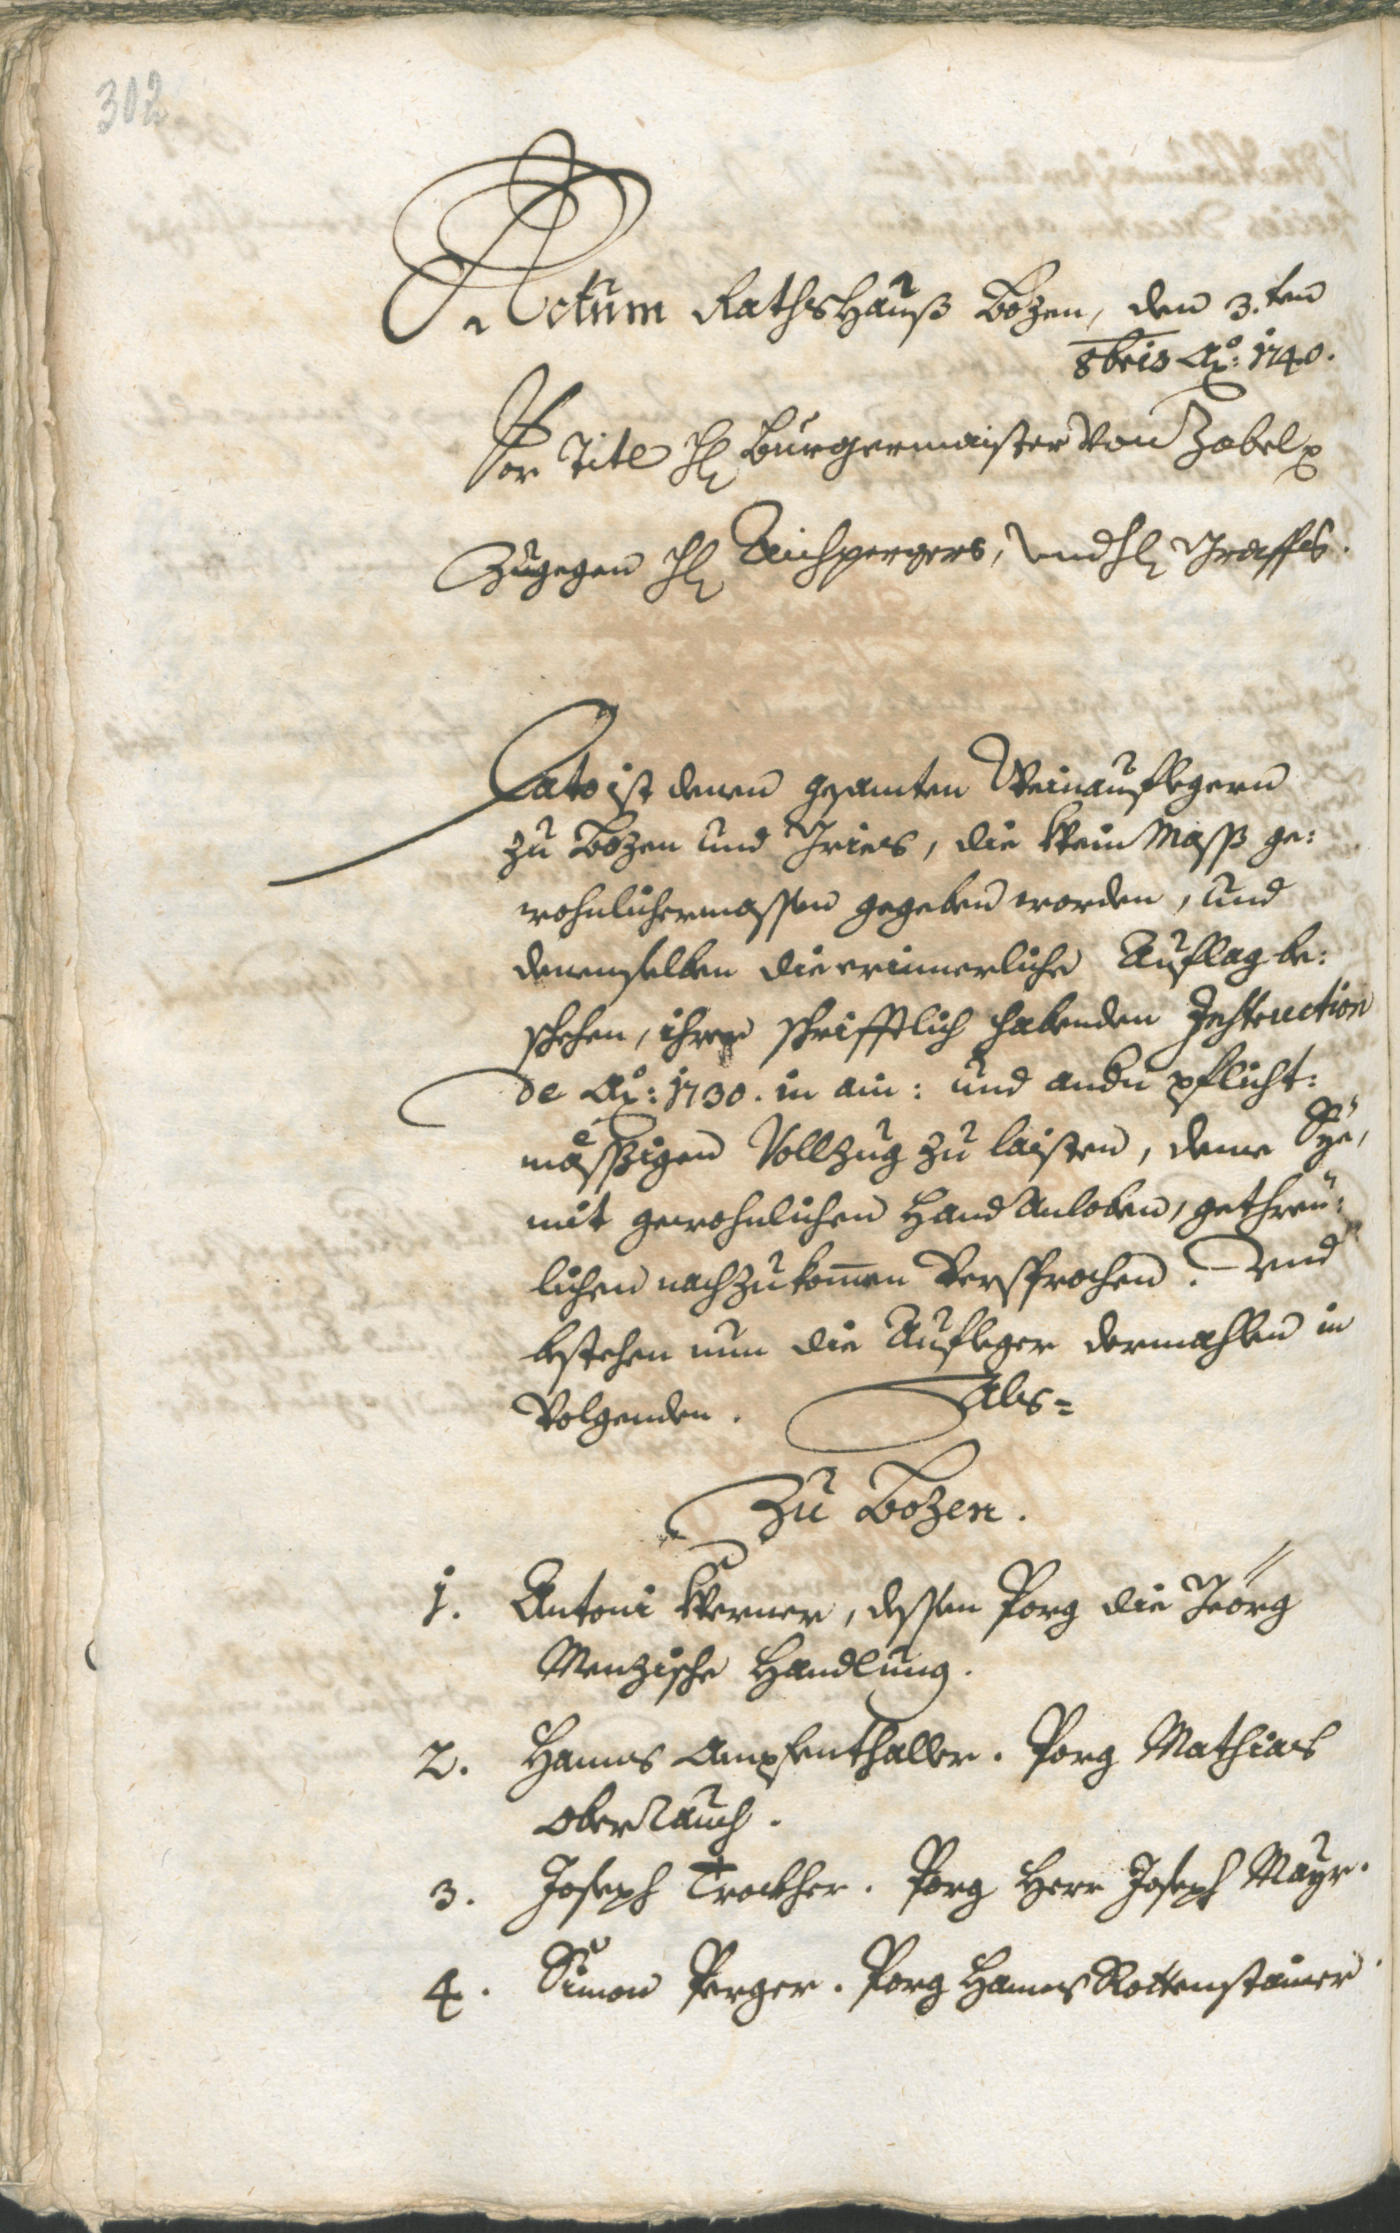 302
Actum Rathshauß Bozen, den 3.ten
8bris Ao: 1740.
Vor Titl H Burgermaister Von Zobel
Zugegen H Aichpergers, und H Graffs.
Dato ist denen gesamten Weinauflegern
zu Bozen und Gries, die Wein Mass ge:
wohnlichermassen gegeben worden, und
denenselben die erinnerliche Auflag be:
schehen, ihrer schrifftlich habenden Instruction
de Ao: 1730. in ain: und andern pflicht:
mässigen Vollzug zu laisten, deme Sye,
mit gewohnlichen Hand Anloben, gethreu:
lichen nachzukommen Versprochen. Und
bestehen nun die Aufleger dermahlen in
Volgenden. Als=
Zu Bozen.
1. Antoni Werner, dessen Porg die Georg
Menzische Handlung.
2. Hannes Ampfenthaller. Porg Mathias
Oberrauch.
3. Joseph Trockher. Porg Herr Joseph Mayr.
4. Simon Perger. Porg Hannes Rottenstainer